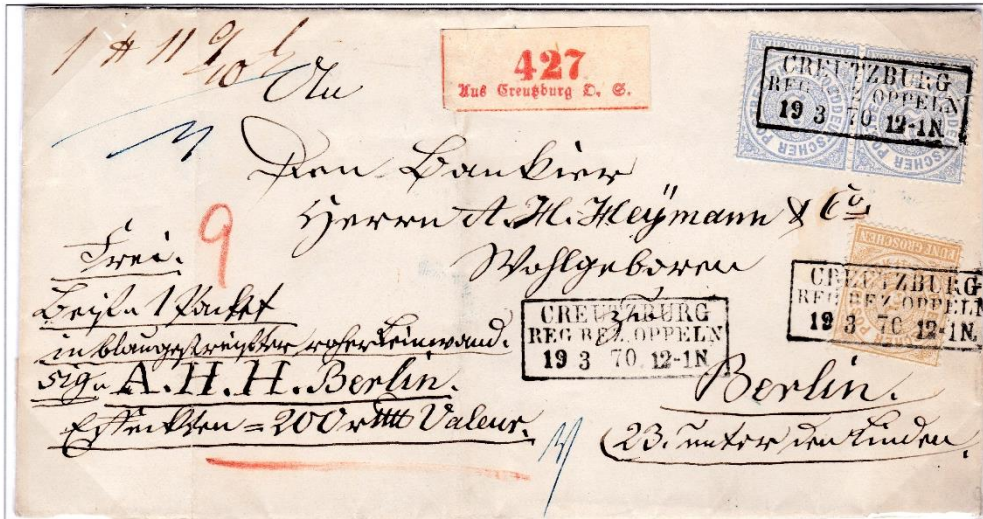 1 # 11 9/10 l
An
427
Aus Creutzburg O. S.
CREUTZBURG
REG BEZ OPPELN
19 3 70 12-1N
Den Bankier
Herrn A. H. Heÿmann & Co
Wohlgeboren
9
Frei.
Beif. 1 Packet
in blaugestreifter roher Leinwand.
Sig. A. H. H. Berlin.
Effekten = 200 Valeur.
FÜNF GROSCHEN
CREUTZBURG
REG BEZ OPPELN
19 3 70 12-1N
CREUTZBURG
REG BEZ OPPELN
19 3 70 12-1N
Berlin.
23. unter den Linden.